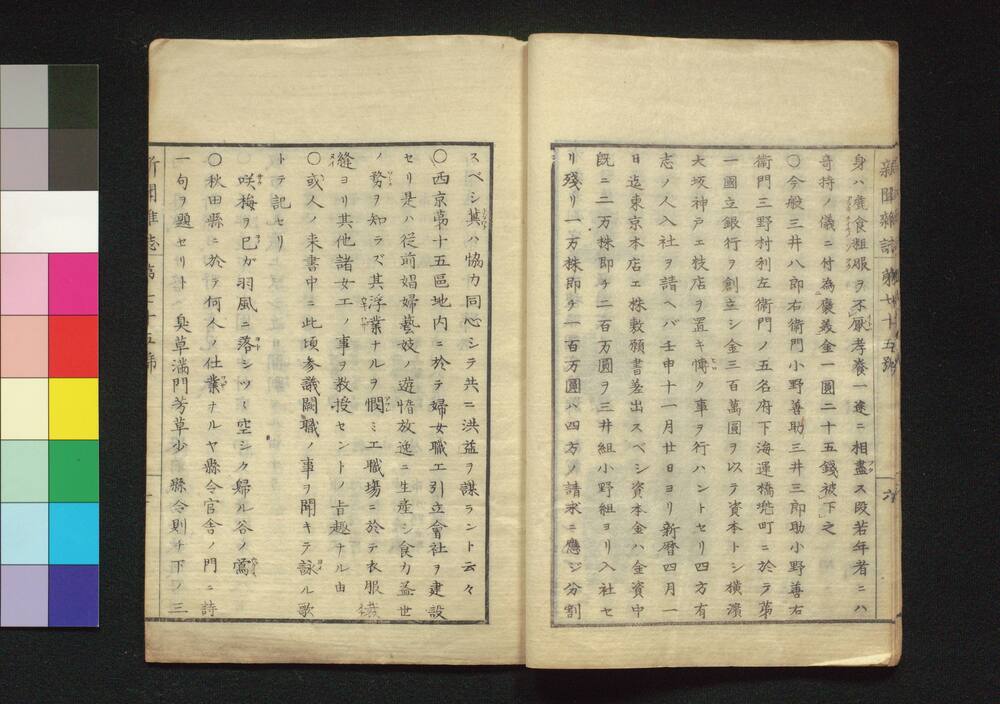 新聞雜誌 第七十五號 六
身ハ麁食粗服ヲ不厭孝養一途ニ相盡ス段若年者ニハ
奇持ノ儀ニ付為褒美金一圓二十五錢被下之
〇今般三井八郎右衛門小野善助三井三郎助小野善右
衛門三野村利左衛門ノ五名府下海運橋兜町ニ於テ第
一國立銀行ヲ創立シ金三百萬圓ヲ以テ資本トシ横濱
大坂神戸エ枝店ヲ置キ博ク事ヲ行ハントセリ四方有
志ノ人入社ヲ請ヘバ壬申十一月廿日ヨリ新暦四月一
日迄東京本店エ株敷願書差出スベシ資本金ハ金資中
既ニ二万株即チ二百万圓ヲ三井組小野組ヨリ入社セ
リ殘リ一万株即チ一百万圓ハ四方ノ請求ニ應ジ分割
スベシ其ハ協力同心シテ共ニ洪益ヲ謀ラント云々
〇西京第十五區地内ニ於テ婦女職工引立會社ヲ建設
セリ是ハ従前娼婦藝妓ノ遊惰放逸ニ生産シ食力益世
ノ務ヲ知ラズ其浮業ナルヲ憫ミエ職場ニ於テ衣服裁
縫ヨリ其他諸女工ノ事ヲ教授セントノ旨趣ナル由
〇或人ノ来書中ニ此頃参議闕職ノ事ヲ聞キテ詠ル歌
トテ記セリ
咲梅ヲ巳ガ羽風ニ落シツヽ空シク歸ル谷ノ鶯
〇秋田縣ニ於テ何人ノ仕業ナルヤ縣令官舎ノ門ニ詩
一句ヲ題セリト 臭草滿門芳草少 縣令則チ下ノ三
新聞雜誌 第七十五號